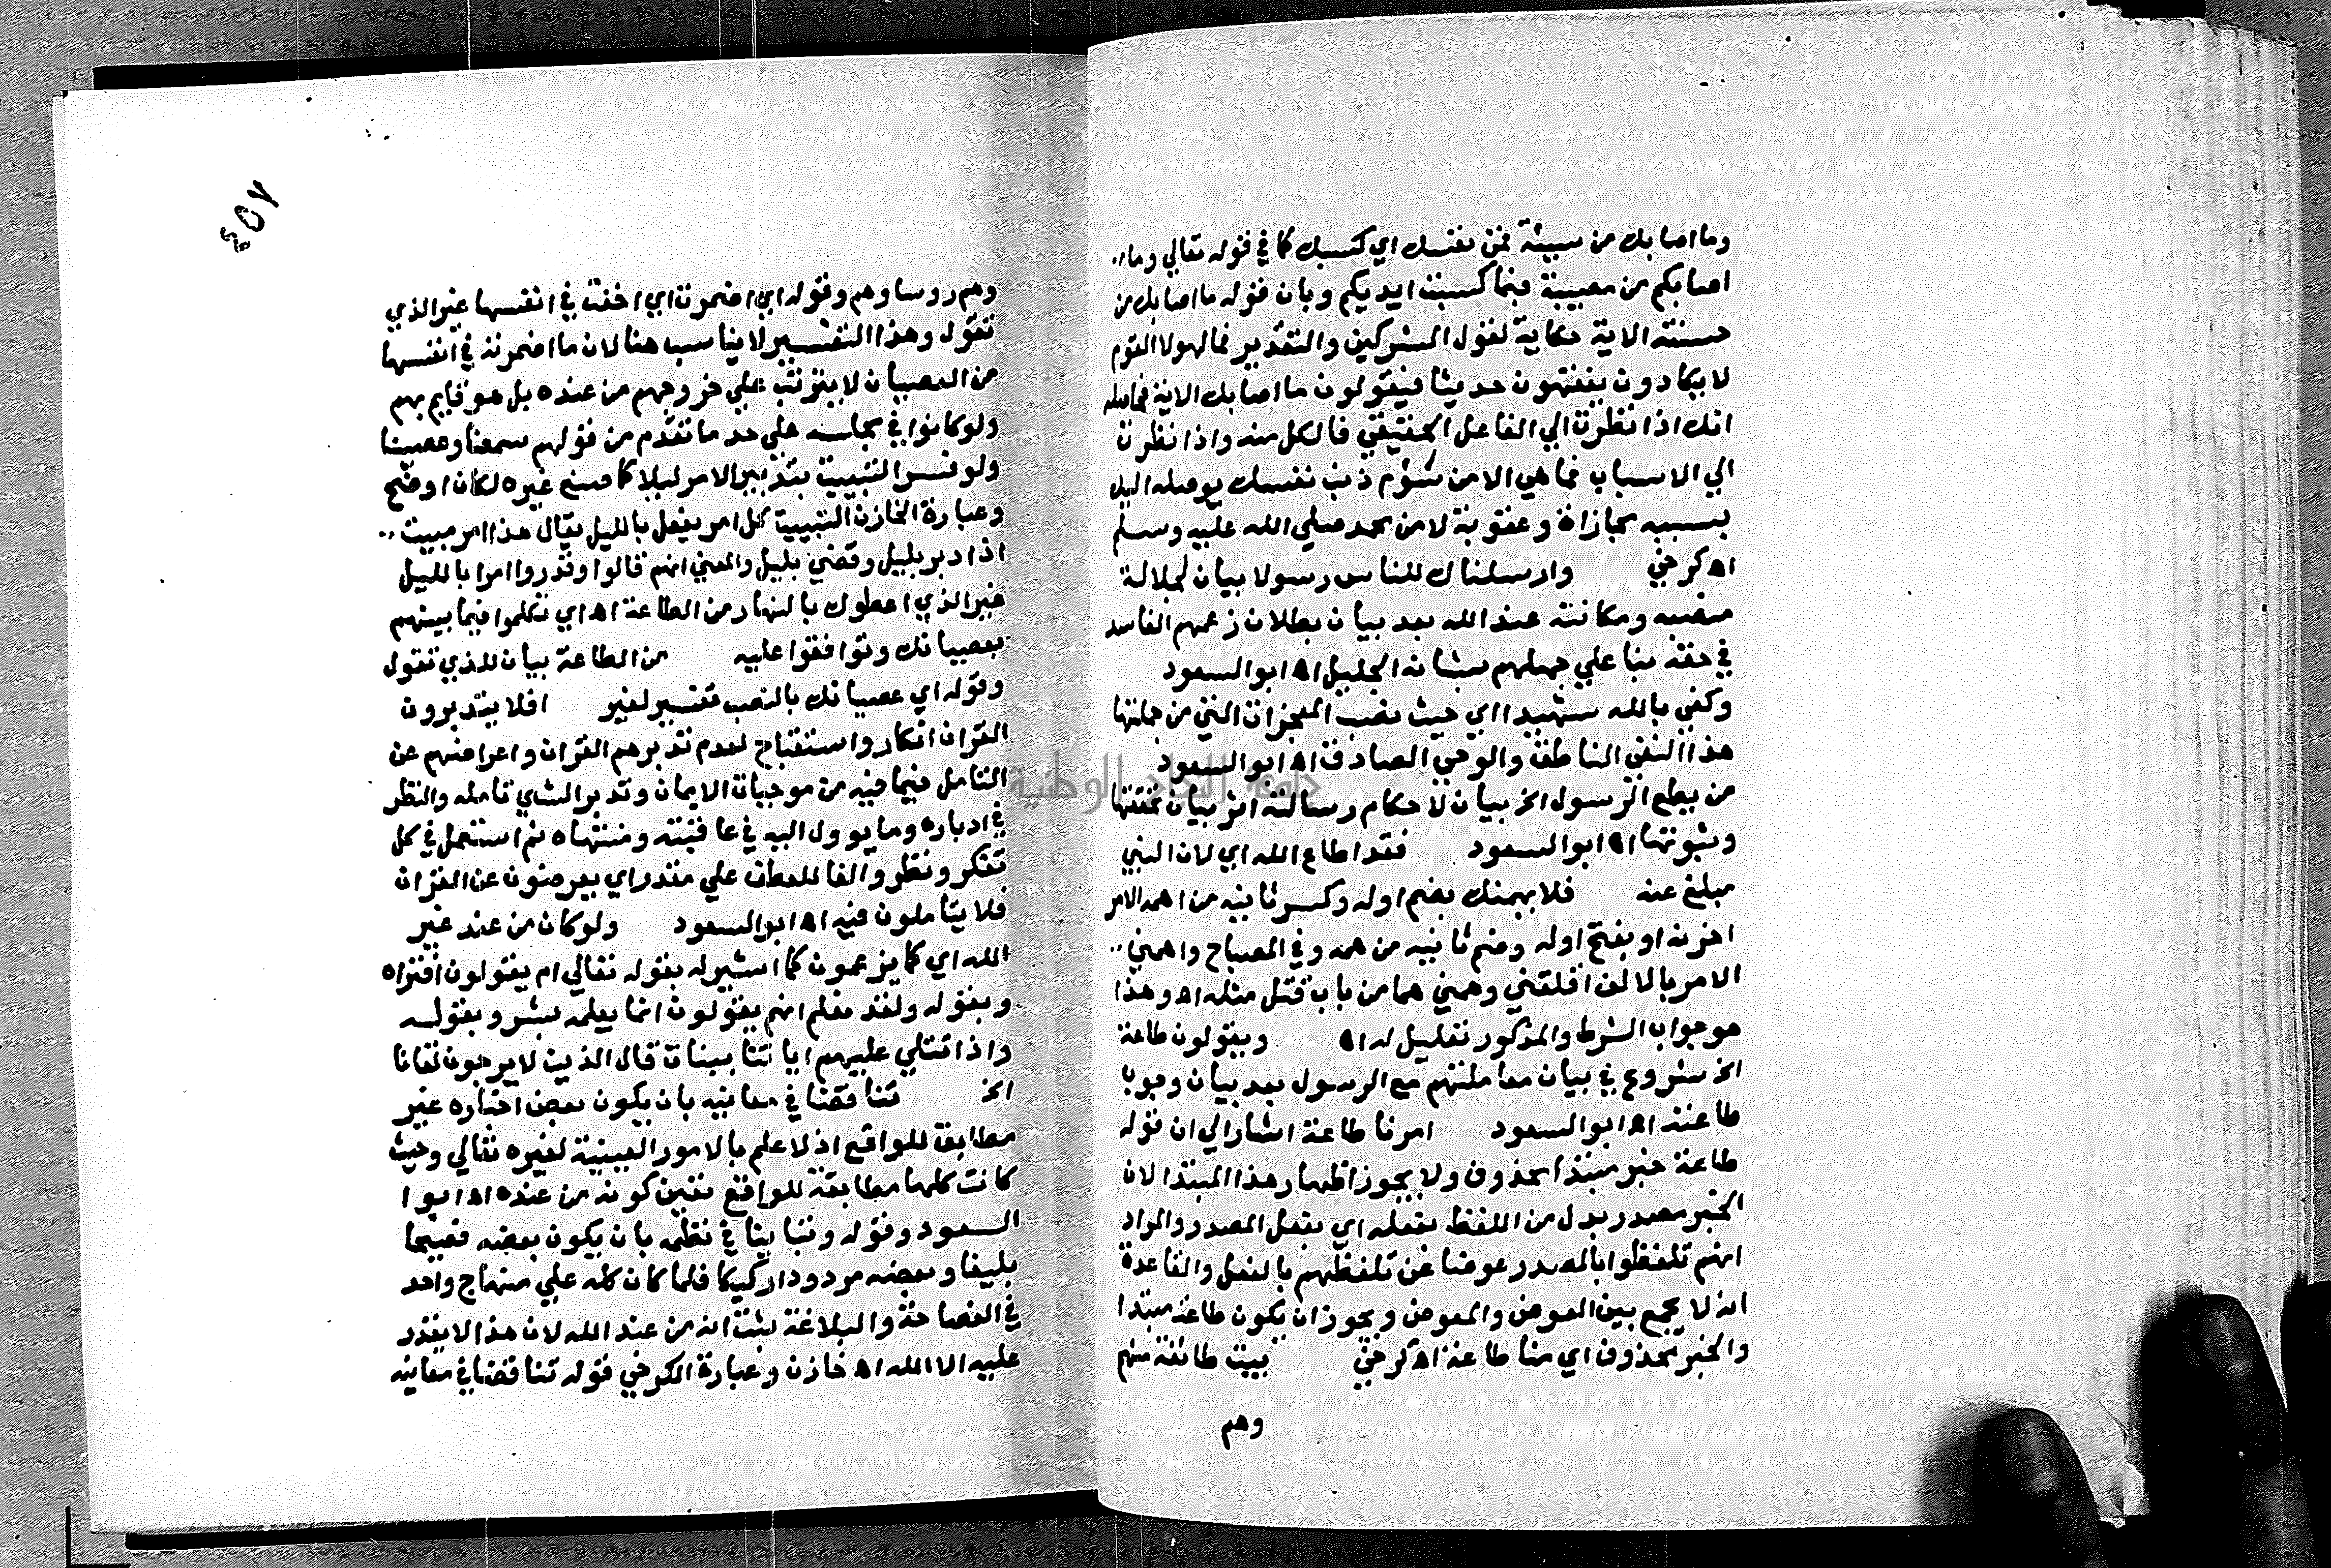 وما اصابك من سيئة فمن نفسك اي كسبك كما في قوله تعالي وما
اصابكم من مصيبة فبما كسبت ايديكم وبان قوله ما اصابك من
حسنة الاية حكاية لقول المشركين والتقدير فما لهولا القوم
لا يكادون يفقهون حديثا فيقولون ما اصابك الاية فحاصله
انك اذا نظرت الي الفاعل الحقيقي فالكل منه واذا نظرت
الي الاسباب فما هي الا من شؤم ذنب نفسك يوصله اليك
بسببه مجازاة وعقوبة لا من محمد صلي الله عليه وسلم
اه كرخي وارسلناك للناس رسولا بيان لجلالة
منصبه ومكانته عند الله بعد بيان بطلان زعمهم الفاسد
في حقه بنا علي جهلهم بشانه الجليل اه ابو السعود
وكفي بالله شهيدا اي حيث نصب المعجزات التي من جملتها
هذا النص الناطق والوحي الصادق اه ابو السعود
من يطع الرسول الخ بيان لاحكام رسالته اثر بيان تحققها
وثبوتها اه ابو السعود فقد اطاع الله اي لان النبي
مبلغ عنه فلا يهمنك بضم اوله وكسر ثانيه من اهمه الامر
احزنه او بفتح اوله وضم ثانيه من همه وفي المصباح واهمني
الامر بالالف اقلقني وهمني هما من باب قتل مثله اه وهذا
هو جواب الشرط والمذكور تعليل له اه ويقولون طاعة
الخ شروع في بيان معاملتهم مع الرسول بعد بيان وجوب
طاعته اه ابو السعود امرنا طاعة اشار الي ان قوله
طاعة خبر مبتدا محذوف ولا يجوز اظهار هذا المبتدا لان
الخبر مصدر بدل من اللفظ بفعله اي بفعل المصدر والمراد
انهم تلفظوا بالمصدر عوضا عن تلفظهم بالفعل والقاعدة
انه لا يجمع بين العوض والمعوض ويجوز ان يكون طاعة مبتدا
والخبر محذوف اي منا طاعة اه كرخي بيت طائفة منهم
وهم
٤٥٧
وهم روساوهم وقوله اي اضمرت اي اخفت في انفسها غير الذي
تقول وهذا التفسير لا يناسب هنا لان ما اضمرته في انفسها
من العصيان لا يترتب علي خروجهم من عنده بل هو قايم بهم
ولو كانوا في مجلسه علي حد ما تقدم من قولهم سمعنا وعصينا
ولو فسر التبييت بتدبير الامر ليلا كما صنع غيره لكان اوضح
وعبارة الخازن التبييت كل امر يفعل بالليل يقال هذا امر مبيت
اذا دبر بليل وقضي بليل والمعني انهم قالوا وقدروا امرا بالليل
غير الذي اعطوك بالنهار من الطاعة اه اي تكلموا فيما بينهم
بعصيانك وتوافقوا عليه من الطاعة بيان للذي تقول
وقوله اي عصيانك بالنصب تفسير لغير افلا يتدبرون
القران انكار واستقباح لعدم تدبرهم القران واعراضهم عن
التامل فيما فيه من موجبات الايمان وتدبر الشي تامله والنظر
في ادباره وما يوول اليه في عاقبته ومنتهاه ثم استعمل في كل
تفكر ونظر والفا للعطف علي مقدر اي يعرضون عن القران
فلا يتاملون فيه اه ابو السعود ولو كان من عند غير
الله اي كما يزعمون كما اشير له بقوله تعالي ام يقولون افتراه
وبقوله ولقد نعلم انهم يقولون انما يعلمه بشر وبقوله
واذا تتلي عليهم اياتنا بينات قال الذين لا يرجون لقانا
الخ تناقضا في معانيه بان يكون بعض اخباره غير
مطابق للواقع اذ لا علم بالامور الغيبية لغيره تعالي وحيث
كانت كلها مطابقة للواقع تعين كونه من عنده اه ابوا
السعود وقوله وتباينا في نظمه بان يكون بعضه فصيحا
بليغا وبعضه مردودا ركيكا فلما كان كله علي منهاج واحد
في الفصاحة والبلاغة ثبت انه من عند الله لان هذا لا يقدر
عليه الا الله اه خازن وعبارة الكرخي قوله تناقضا في معانيه
جامعة النجاح الوطنية